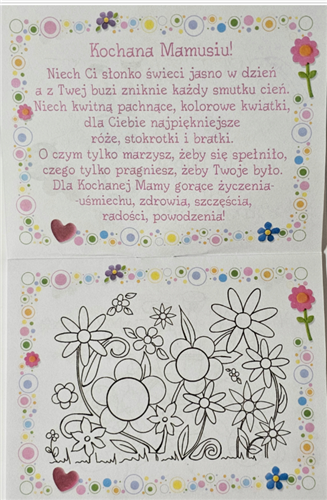 Kochana Mamusiu!
Niech Ci słonko świeci jasno w dzień
a z Twej buzi zniknie każdy smutku cień.
Niech kwitną pachnące, kolorowe kwiatki,
dla Ciebie najpiękniejsze
róże, stokrotki i bratki.
O czym tylko marzysz, żeby się spełniło,
czego tylko pragniesz, żeby Twoje było.
Dla Kochanej Mamy gorące życzenia-
uśmiechu, zdrowia, szczęścia,
radości, powodzenia!